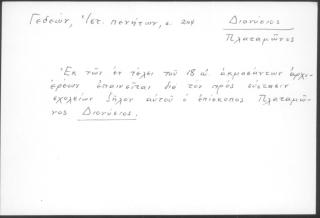 Γεδεών, Ἱστ. πενήτων, σ. 204
Διονύσιος
Πλαταμῶνος
Ἐκ τῶν ἐν τέλει τοῦ 18 αἰ. ἀκμασάντων ἀρχι-
ερέων ἐπαινεῖται διὰ τὸν πρὸς σύστασιν
σχολείων ζῆλον αὐτοῦ ὁ ἐπίσκοπος Πλαταμῶ-
νος Διονύσιος.